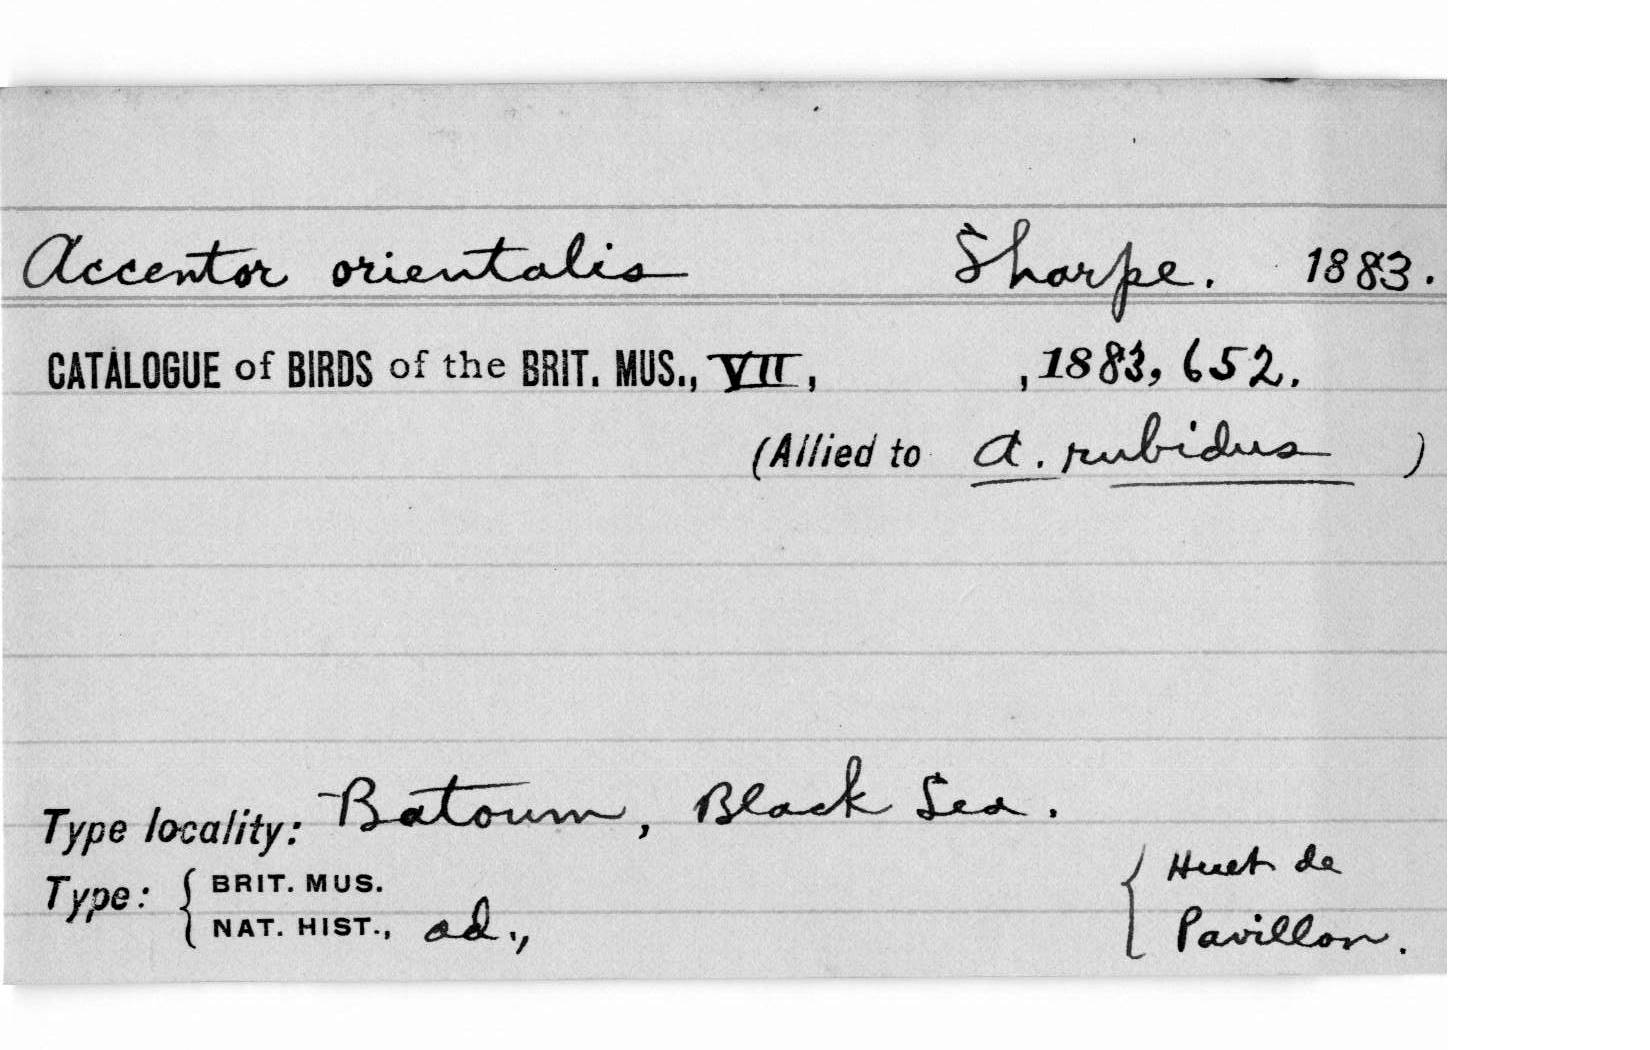 Accentor orientalis Sharpe. 1883.
CATALOGUE of BIRDS of the BRIT. MUS., VII, , 1883, 652.
(Allied to A. rubidus )
Type locality: Batoum, Black Sea.
Type: { BRIT. MUS. { Huet de
NAT. HIST., ad., Pavillon.